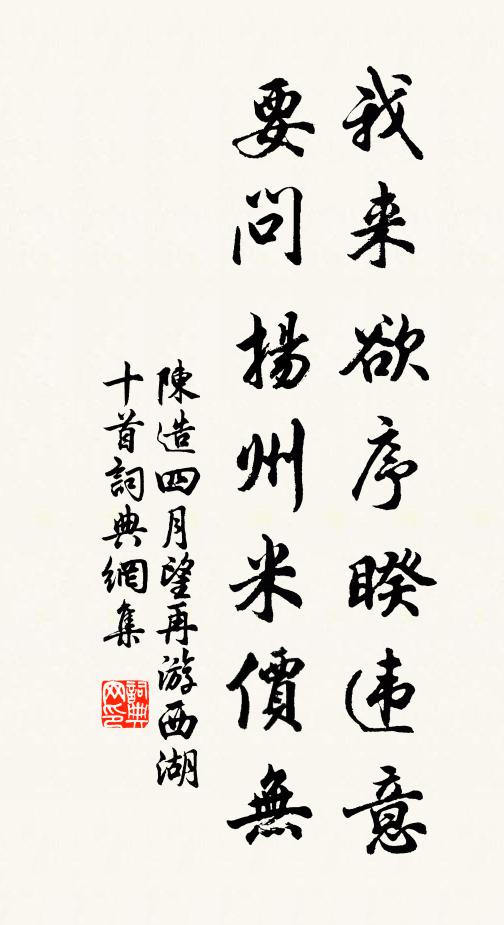 我来欲序睽违意
要問揚州米價無
陳造四月望再游西湖
十首詞典網集
詞典网印